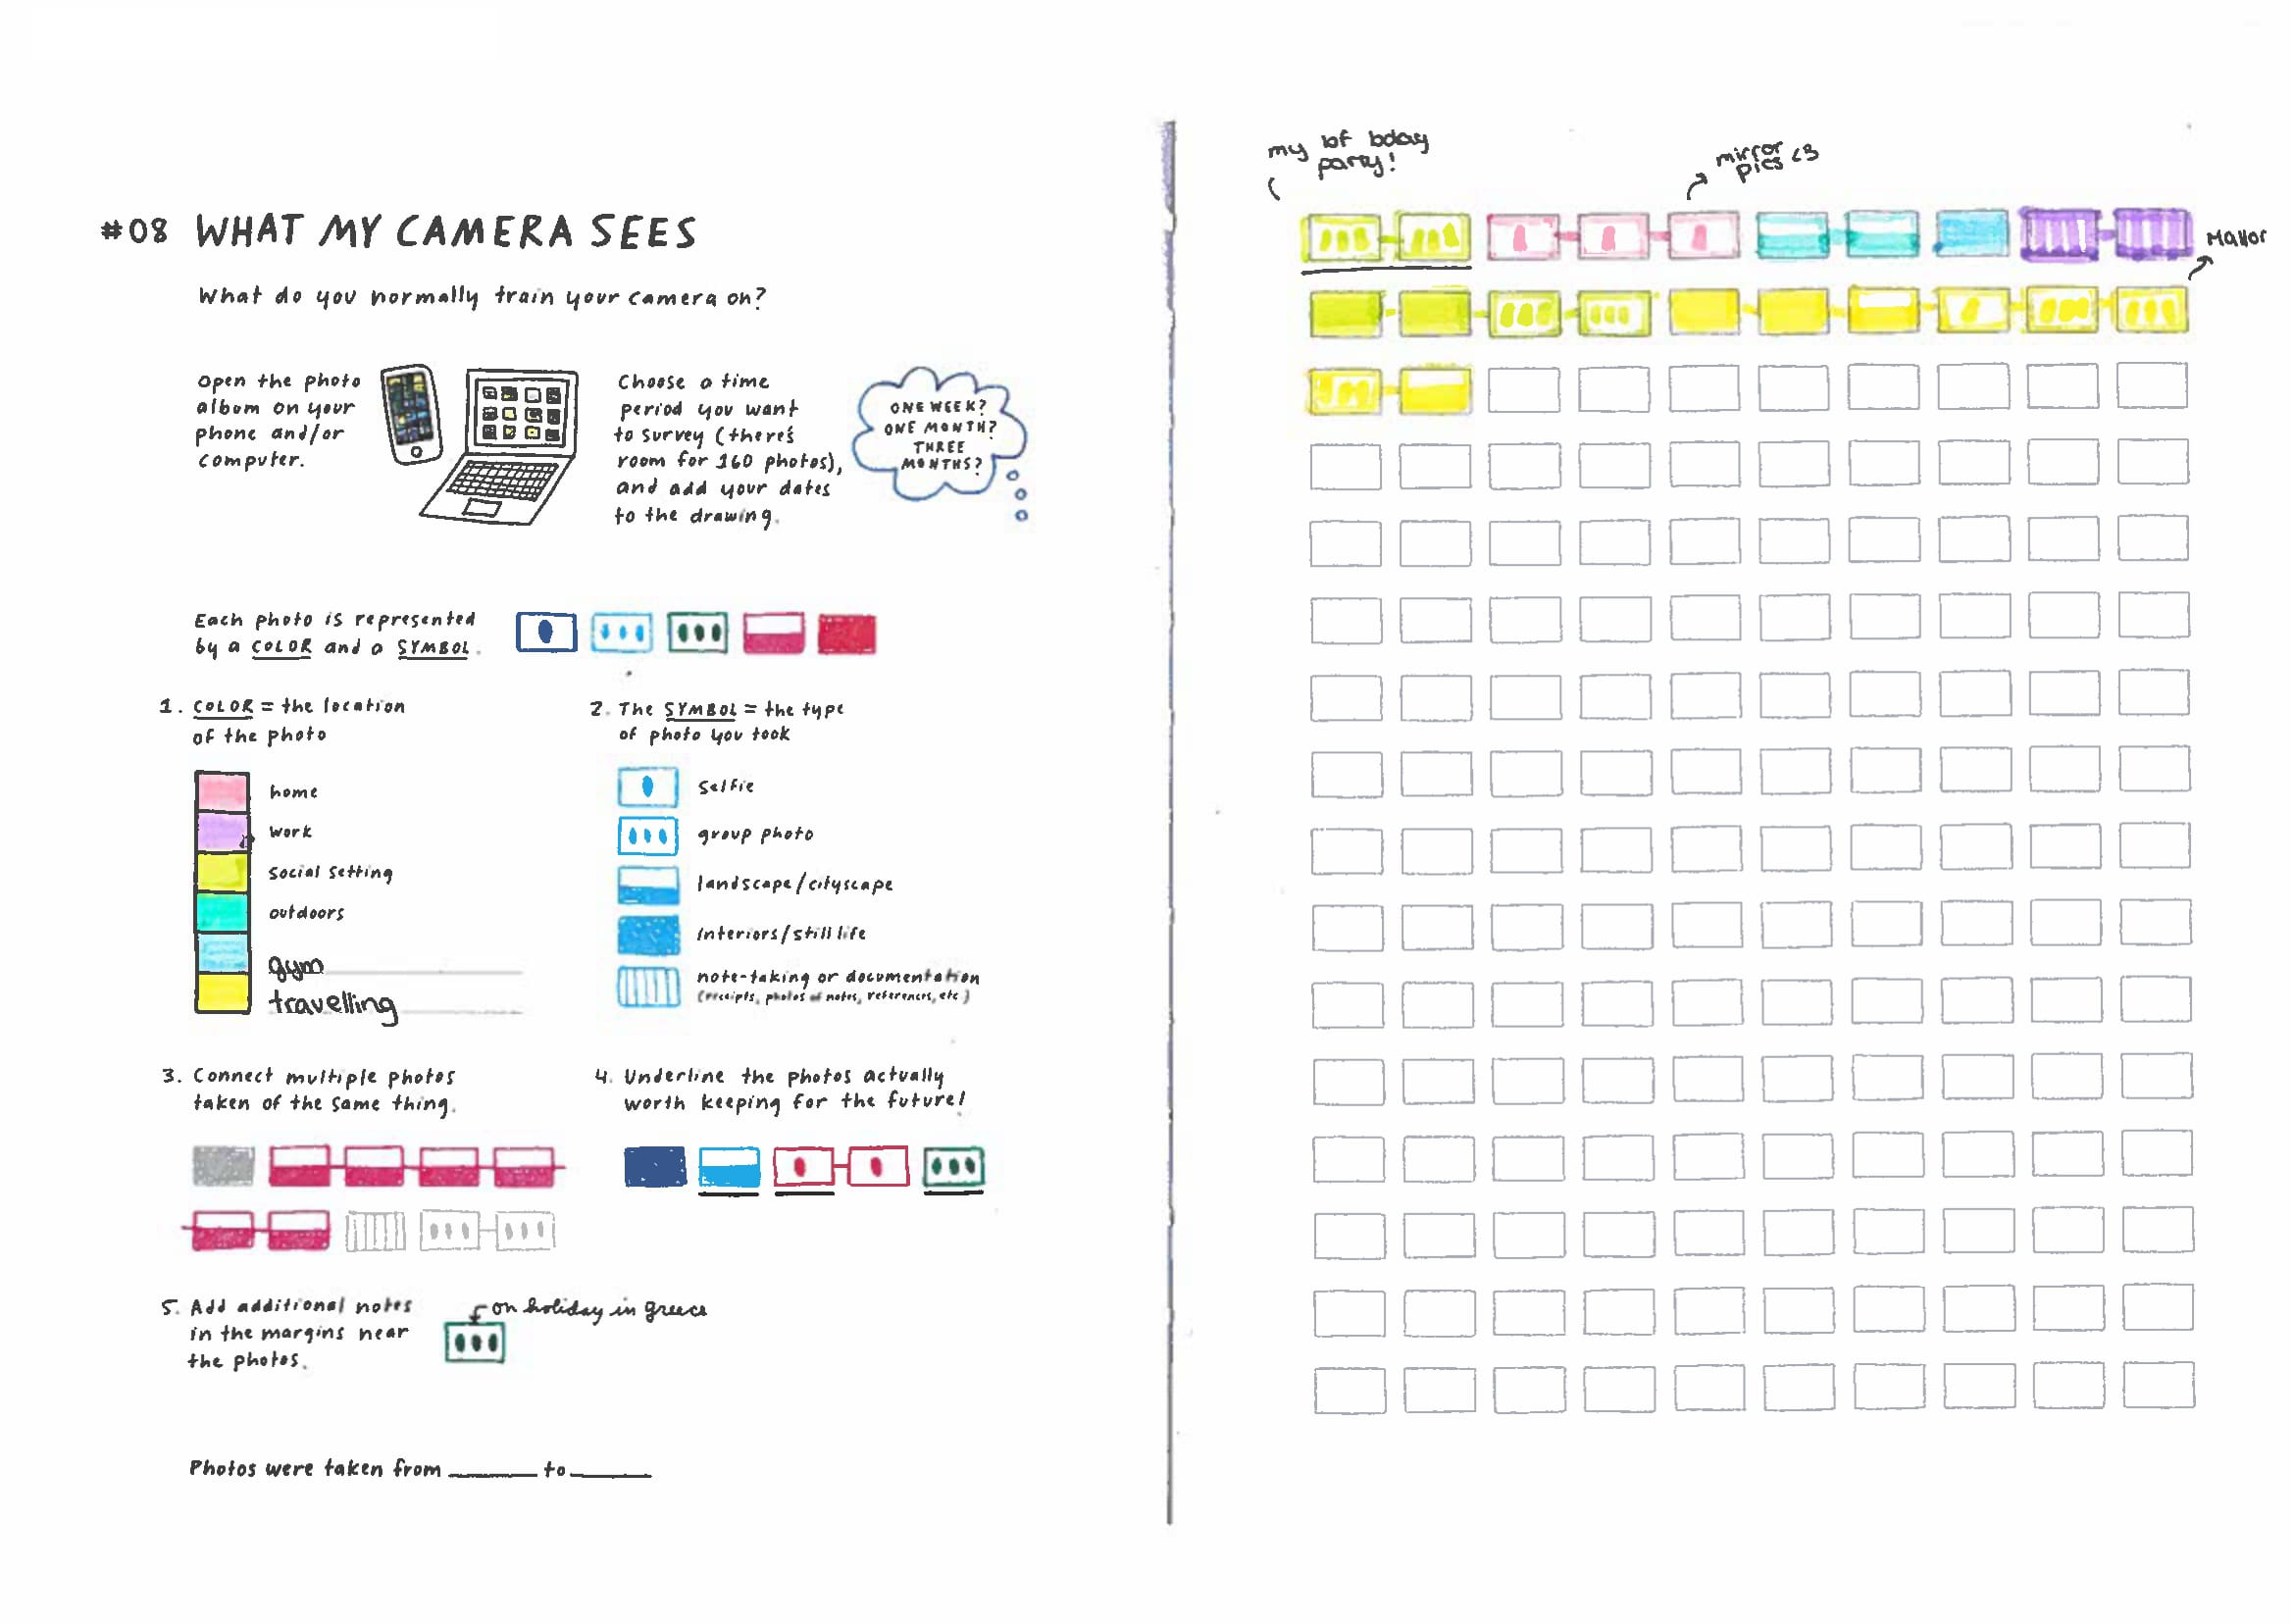 #08 WHAT MY CAMERA SEES
What do you normally train your camera on?
Open the photo
album on your
phone and/or
computer.
Choose a time
period you want
to survey (there's
room for 160 photos),
and add your dates
to the drawing.
ONE WEEK?
ONE MONTH?
THREE
MONTHS?
Each photo is represented
by a COLOR and a SYMBOL.
1. COLOR = the location
of the photo
home
work
social setting
outdoors
gym
travelling
2. The SYMBOL = the type
of photo you took
selfie
group photo
landscape/cityscape
interiors/still life
note-taking or documentation
(receipts, photos of notes, references, etc)
3. Connect multiple photos
taken of the same thing.
4. Underline the photos actually
worth keeping for the future!
5. Add additional notes
in the margins near
the photos.
on holiday in greece
Photos were taken from ______ to ______
my bf bday
party!
mirror
pics <3
Mallor